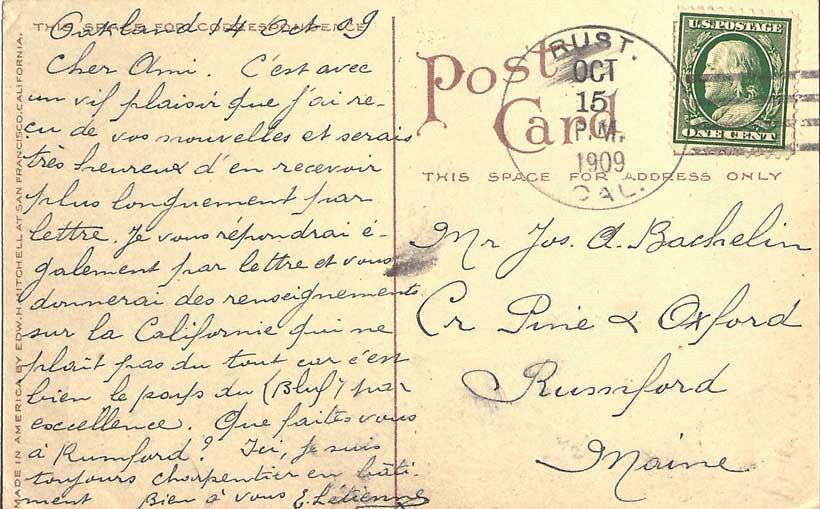 THIS SPACE FOR CORRESPONDENCE
Oakland 14 Oct 09
Cher Ami. C'est avec
un vif plaisir que j'ai re-
çu de vos nouvelles et serais
très heureux d'en recevoir
plus longuement par
lettre. Je vous répondrai é-
galement par lettre et vous
donnerai des renseignements
sur la Californie qui ne
plait pas du tout car c'est
bien le pays du (Bluf) par
excellence. Que faites vous
à Rumford? Ici, je suis
toujours charpentier en bâti-
ment Bien à vous E. Létienne
MADE IN AMERICA BY EDW. H. MITCHELL AT SAN FRANCISCO, CALIFORNIA.
Post
Card
THIS SPACE FOR ADDRESS ONLY
RUST.
OCT
15
P.M.
1909
CAL.
U.S. POSTAGE
ONE CENT
Mr Jos. A. Bachelin
Cr Pine & Oxford
Rumford
Maine